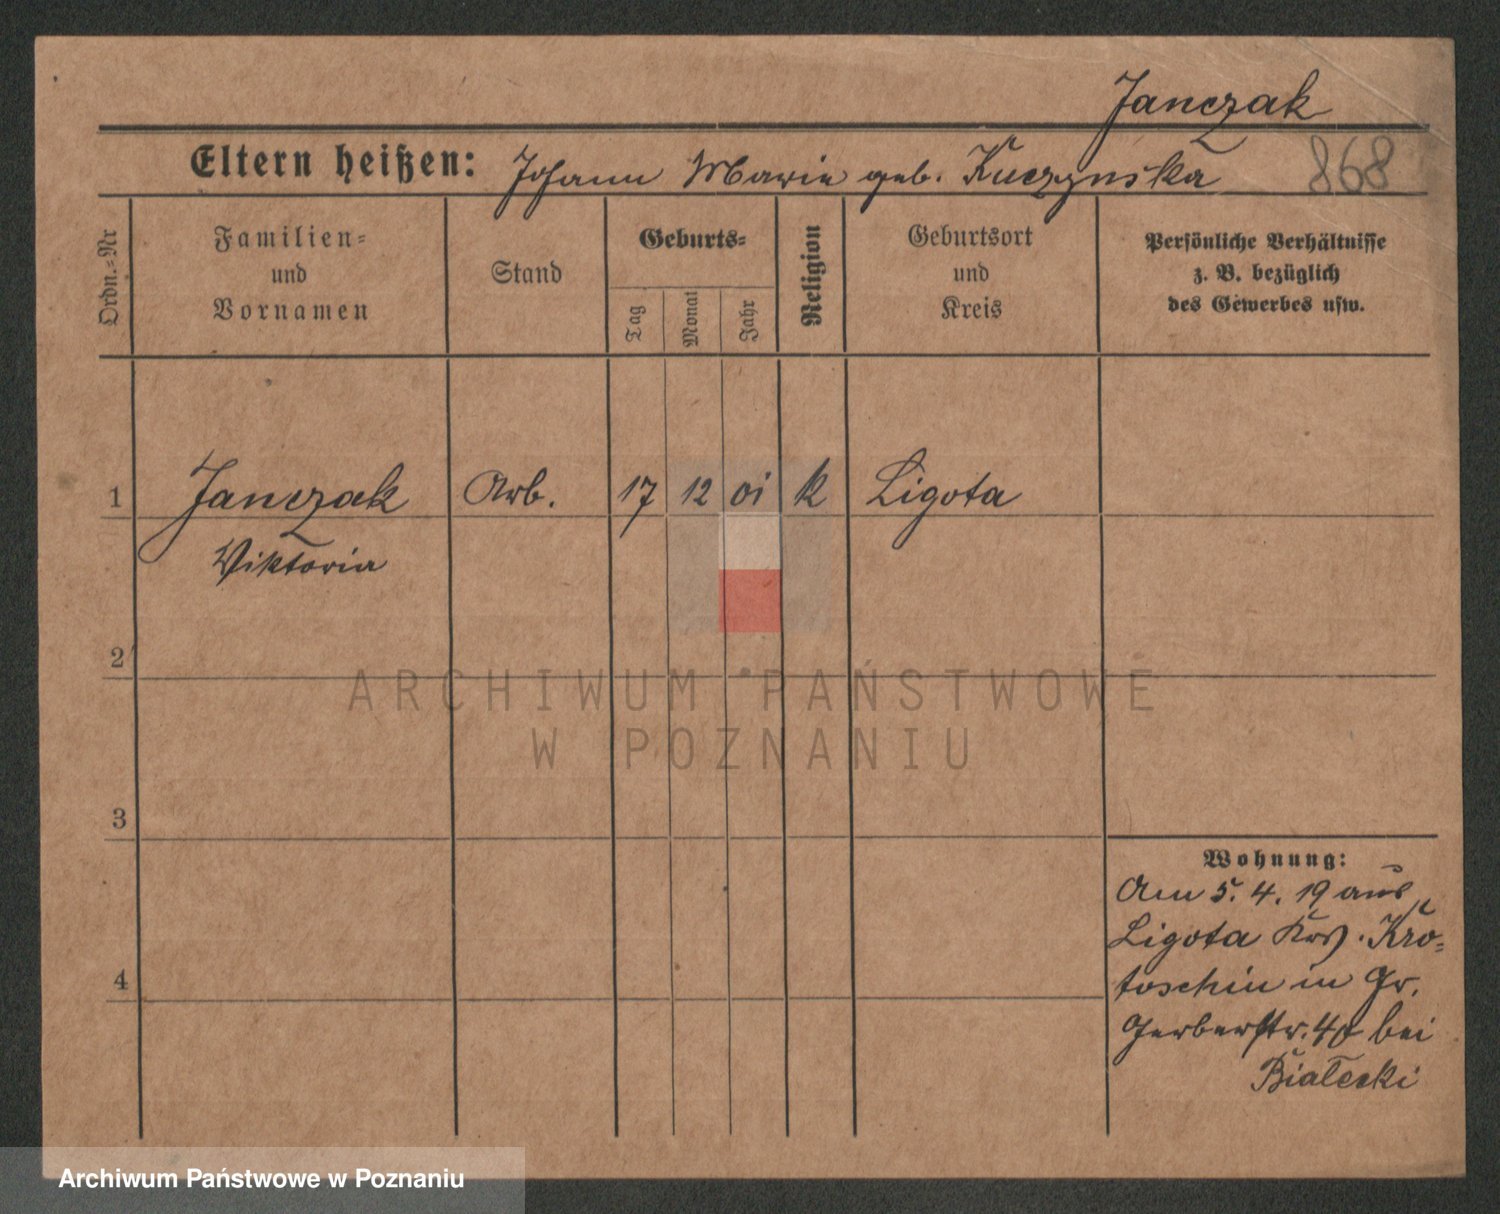 Janczak
Eltern heißen: Johann Marie geb. Kuczyńska 868
Ordn.-Nr
Familien-
und
Vornamen
Stand
Geburts-
Tag
Monat
Jahr
Religion
Geburtsort
und
Kreis
Persönliche Verhältnisse
z. B. bezüglich
des Gewerbes usw.
1 Janczak Arb. 17 12 01 k Ligota
Viktoria
2
ARCHIWUM PAŃSTWOWE
W POZNANIU
3
Wohnung:
Am 5. 4. 19 aus
Ligota Krs. Kro-
4
toschin in Gr.
Gerberstr. bei
Białecki
Archiwum Państwowe w Poznaniu